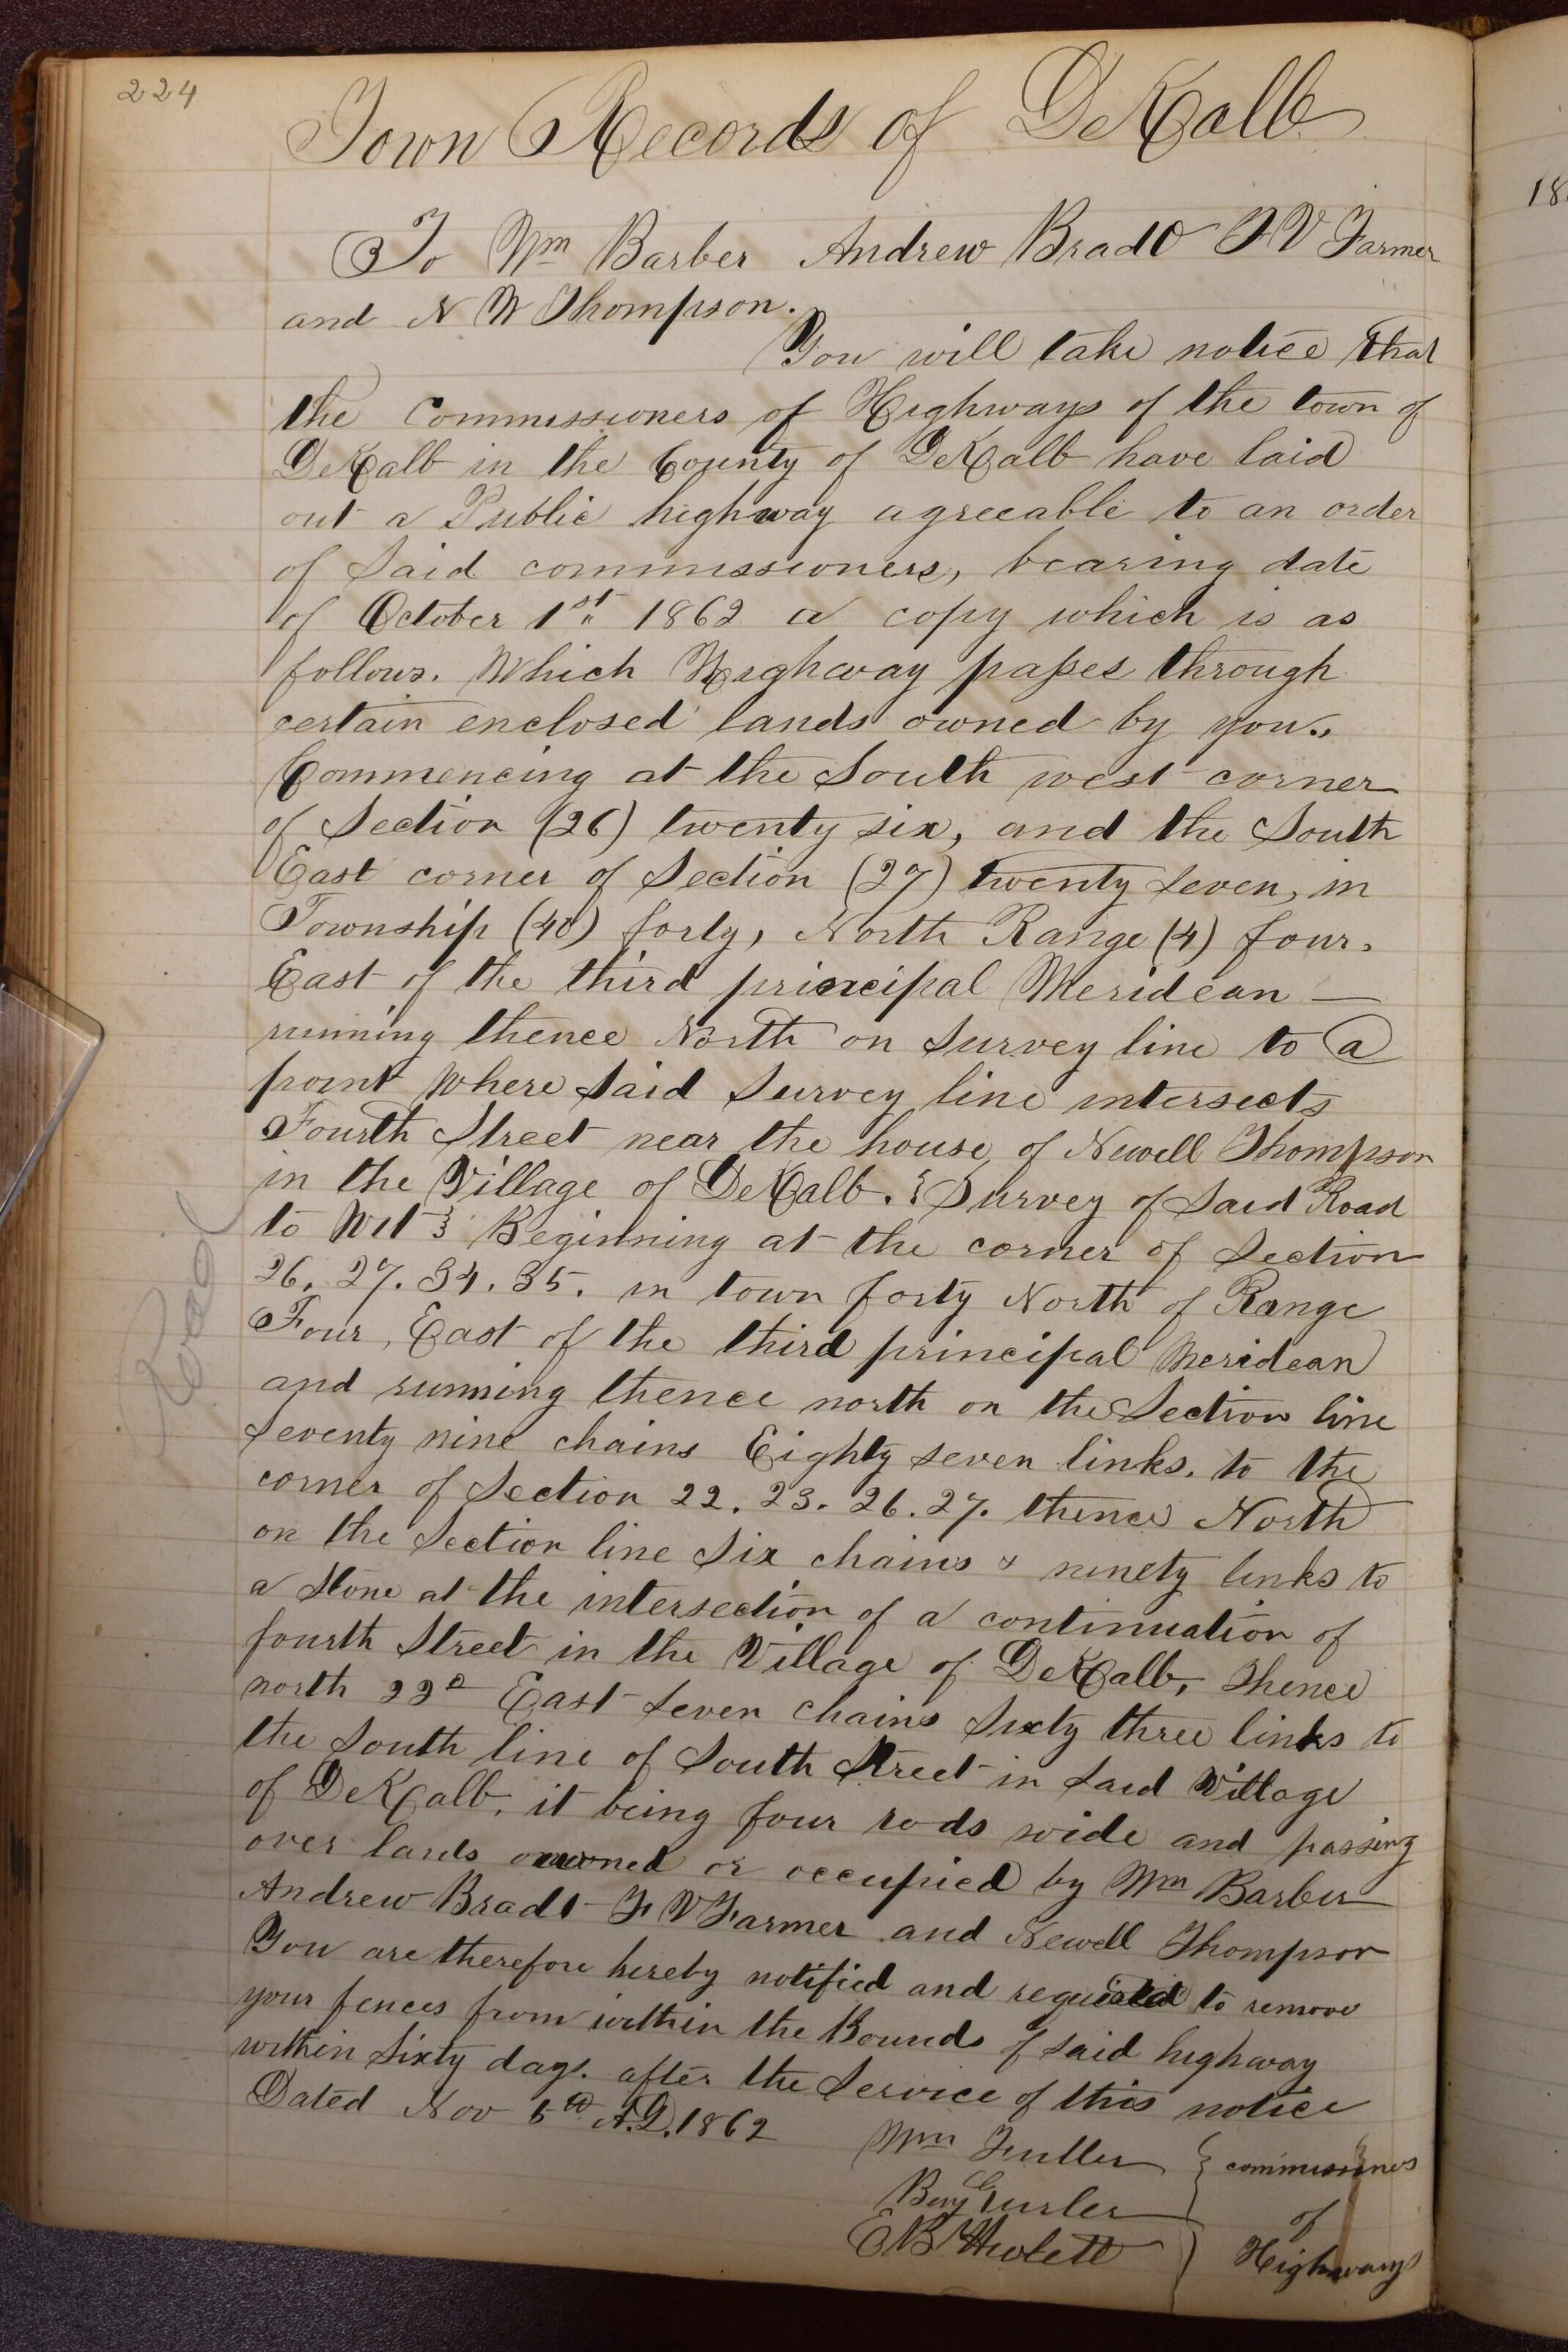 224
Town Records of DeKalb
To Wm Barber Andrew Bradt F V Farmer
and N W Thompson.
You will take notice that
the Commissioners of Highways of the town of
DeKalb in the County of DeKalb have laid
out a Public highway agreeable to an order
of Said commissioners, bearing date
of October 1st 1862 a copy which is as
follows. Which Highway passes through
certain enclosed lands owned by you.
Commencing at the South west corner
of Section (26) twenty six, and the South
East corner of Section (27) twenty seven, in
Township (40) forty, North Range (4) four.
East of the third principal Meridean —
running thence North on Survey line to a
point Where Said Survey line intersects
Fourth Street near the house of Newell Thompson
in the Village of DeKalb. { Survey of Said Road
to Wit } Beginning at the corner of Section
26. 27. 34. 35. in town forty North of Range
Four, East of the third principal Meridean
and running thence north on the Section line
Seventy nine chains Eighty seven links. to the
corner of Section 22. 23. 26. 27. thence North
on the Section line Six chains & ninety links to
a Stone at the intersection of a continuation of
fourth Street in the Village of DeKalb, Thence
north 22° East Seven Chains Sixty three links to
the South line of South Street in Said Village
of DeKalb, it being four rods wide and passing
over lands owned or occupied by Wm Barber
Andrew Bradt F V Farmer and Newell Thompson
You are therefore hereby notified and required to remove
your fences from within the Bounds of said highway
within Sixty days. after the Service of this notice
Dated Nov 5th A.D. 1862
Wm Fuller } commissioners
Benj Gurler of
E B Hulett Highways
Road
18